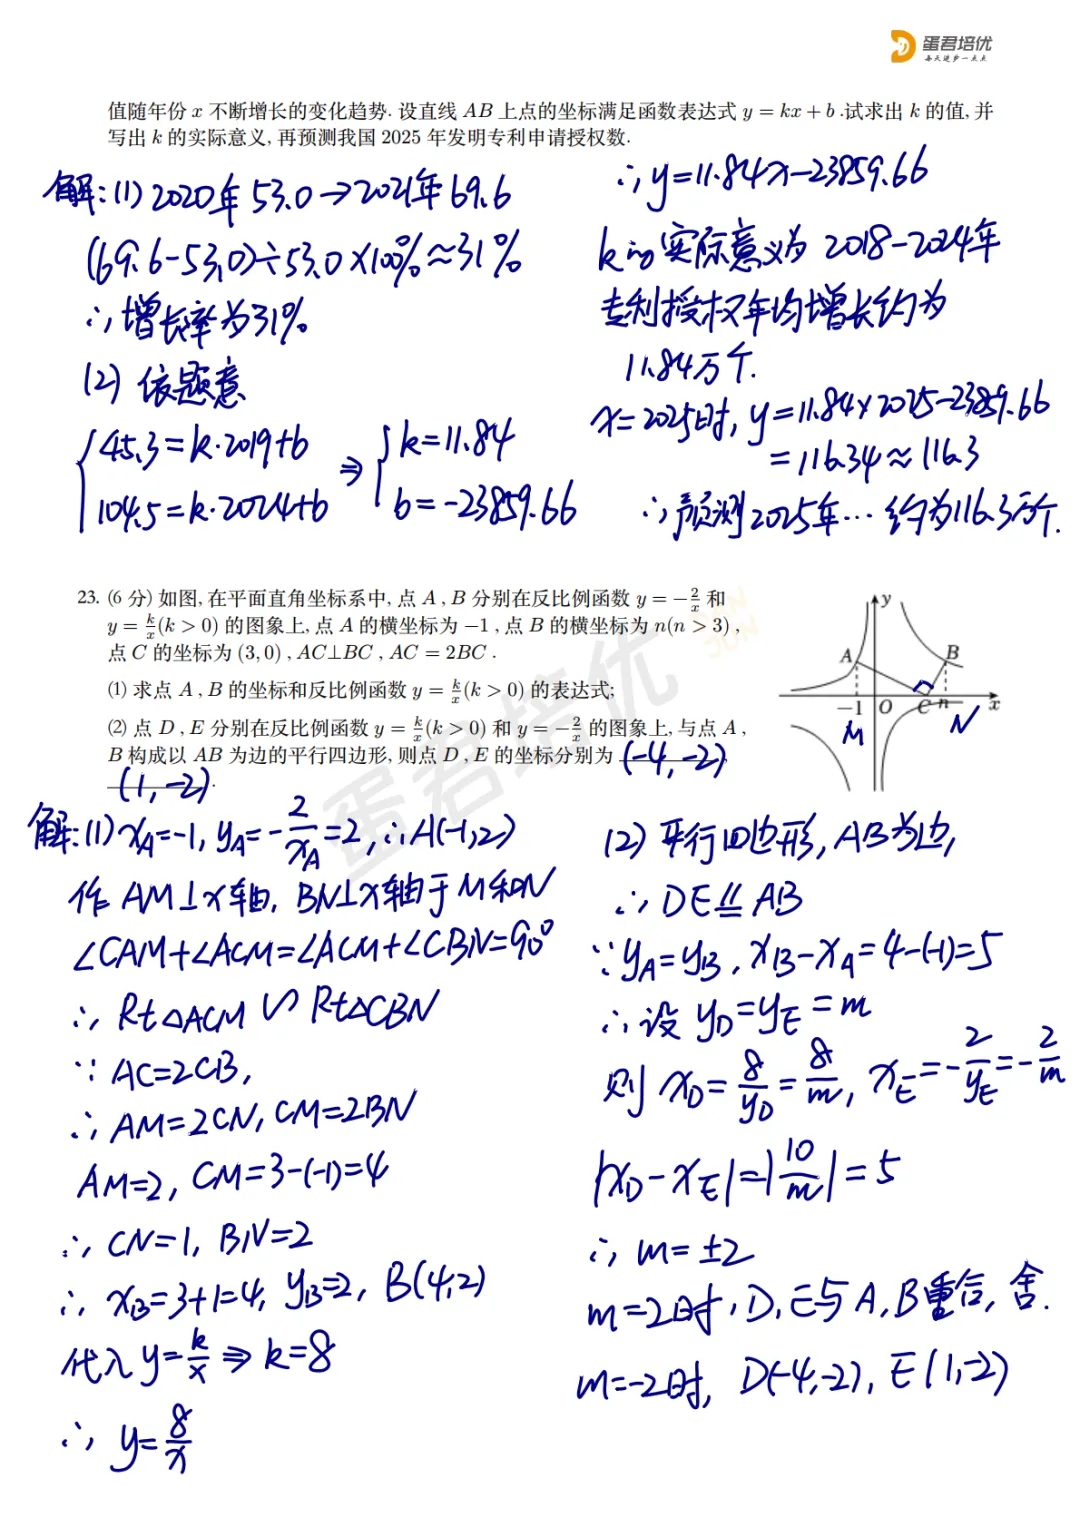 蛋君培优
每天进步一点点
值随年份 x 不断增长的变化趋势. 设直线 AB 上点的坐标满足函数表达式 y = kx + b .试求出 k 的值, 并
写出 k 的实际意义, 再预测我国 2025 年发明专利申请授权数.
解:(1) 2020年 53.0→2021年 69.6
(69.6-53.0)÷53.0×100%≈31%
∴增长率为31%
(2) 依题意
{45.3=k·2019+b
104.5=k·2024+b
⇒ {k=11.84
b=-23859.66
∴y=11.84x-23859.66
k的实际意义为 2018-2024年
专利授权年均增长约为
11.84万个.
x=2025时, y=11.84×2025-23859.66
=116.34≈116.3
∴预测2025年…约为116.3万个.
23. (6 分) 如图, 在平面直角坐标系中, 点 A , B 分别在反比例函数 y = -2/x 和
y = k/x (k > 0) 的图象上, 点 A 的横坐标为 −1 , 点 B 的横坐标为 n(n > 3) ,
点 C 的坐标为 (3, 0) , AC⊥BC , AC = 2BC .
(1) 求点 A , B 的坐标和反比例函数 y = k/x (k > 0) 的表达式;
(2) 点 D , E 分别在反比例函数 y = k/x (k > 0) 和 y = -2/x 的图象上, 与点 A ,
B 构成以 AB 为边的平行四边形, 则点 D , E 的坐标分别为 (-4,-2),
(1,-2).
y
A
B
−1
O
C
n
x
M
N
蛋君培优
DAN
JUN
解:(1) x_A=-1, y_A=-2/x_A=2, ∴A(-1,2)
作 AM⊥x轴, BN⊥x轴于M和N
∠CAM+∠ACM=∠ACM+∠CBN=90°
∴ Rt△ACM ∽ Rt△CBN
∵ AC=2CB,
∴ AM=2CN, CM=2BN
AM=2, CM=3-(-1)=4
∴ CN=1, BN=2
∴ x_B=3+1=4, y_B=2, B(4,2)
代入 y=k/x ⇒ k=8
∴ y=8/x
(2) 平行四边形, AB为边,
∴ DE∥AB
∵ y_A=y_B, x_B-x_A=4-(-1)=5
∴设 y_D=y_E=m
则 x_D=8/y_D=8/m, x_E=-2/y_E=-2/m
|x_D-x_E|=|10/m|=5
∴ m=±2
m=2时, D,E与A,B重合, 舍.
m=-2时, D(-4,-2), E(1,-2)